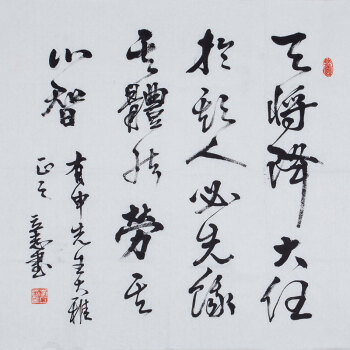 天將降大任
於斯人必先餓
其體肤勞其
心智
有申先生大雅
正之
書